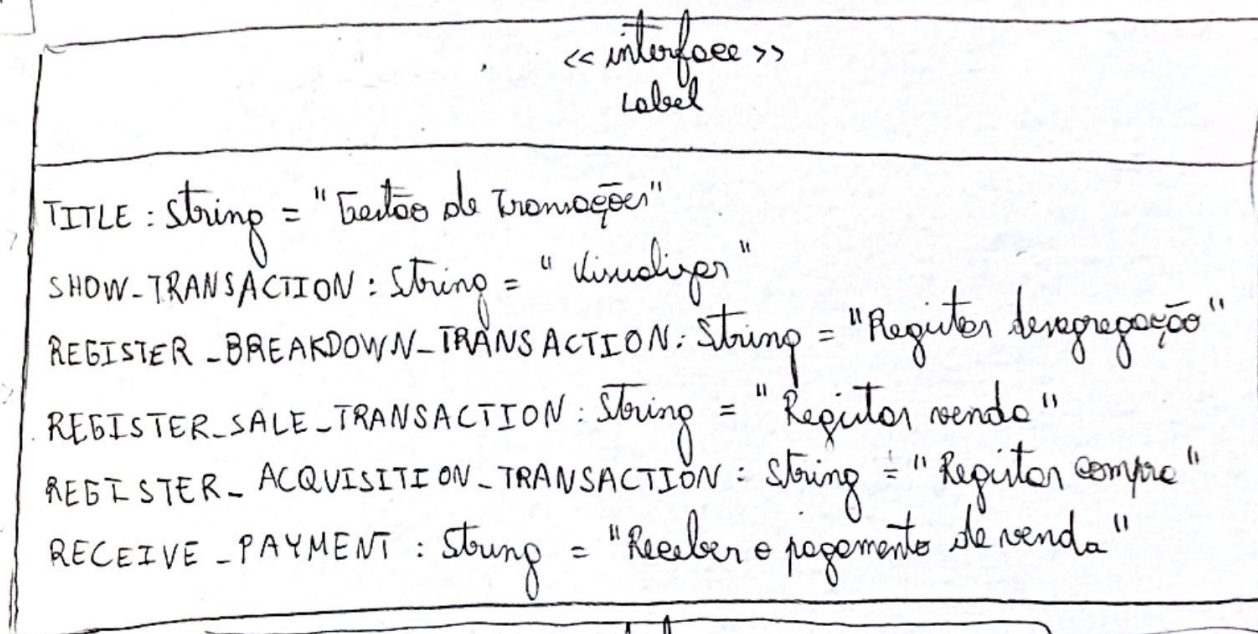 << interface >>
Label
TITLE : String = "Gestão de Transações"
SHOW_TRANSACTION : String = "Visualizar"
REGISTER_BREAKDOWN_TRANSACTION : String = "Registar desagregação"
REGISTER_SALE_TRANSACTION : String = "Registar venda"
REGISTER_ACQUISITION_TRANSACTION : String = "Registar compra"
RECEIVE_PAYMENT : String = "Receber o pagamento de venda"